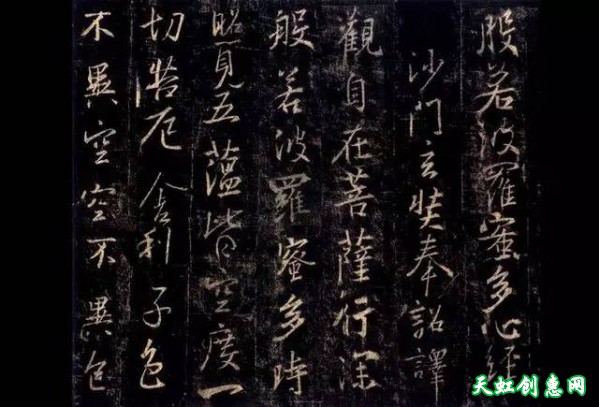 般若波羅蜜多心經
沙門玄奘奉詔譯
觀自在菩薩行深
般若波羅蜜多時
照見五蘊皆空度一
切苦厄舍利子色
不異空空不異色
天虹创惠网